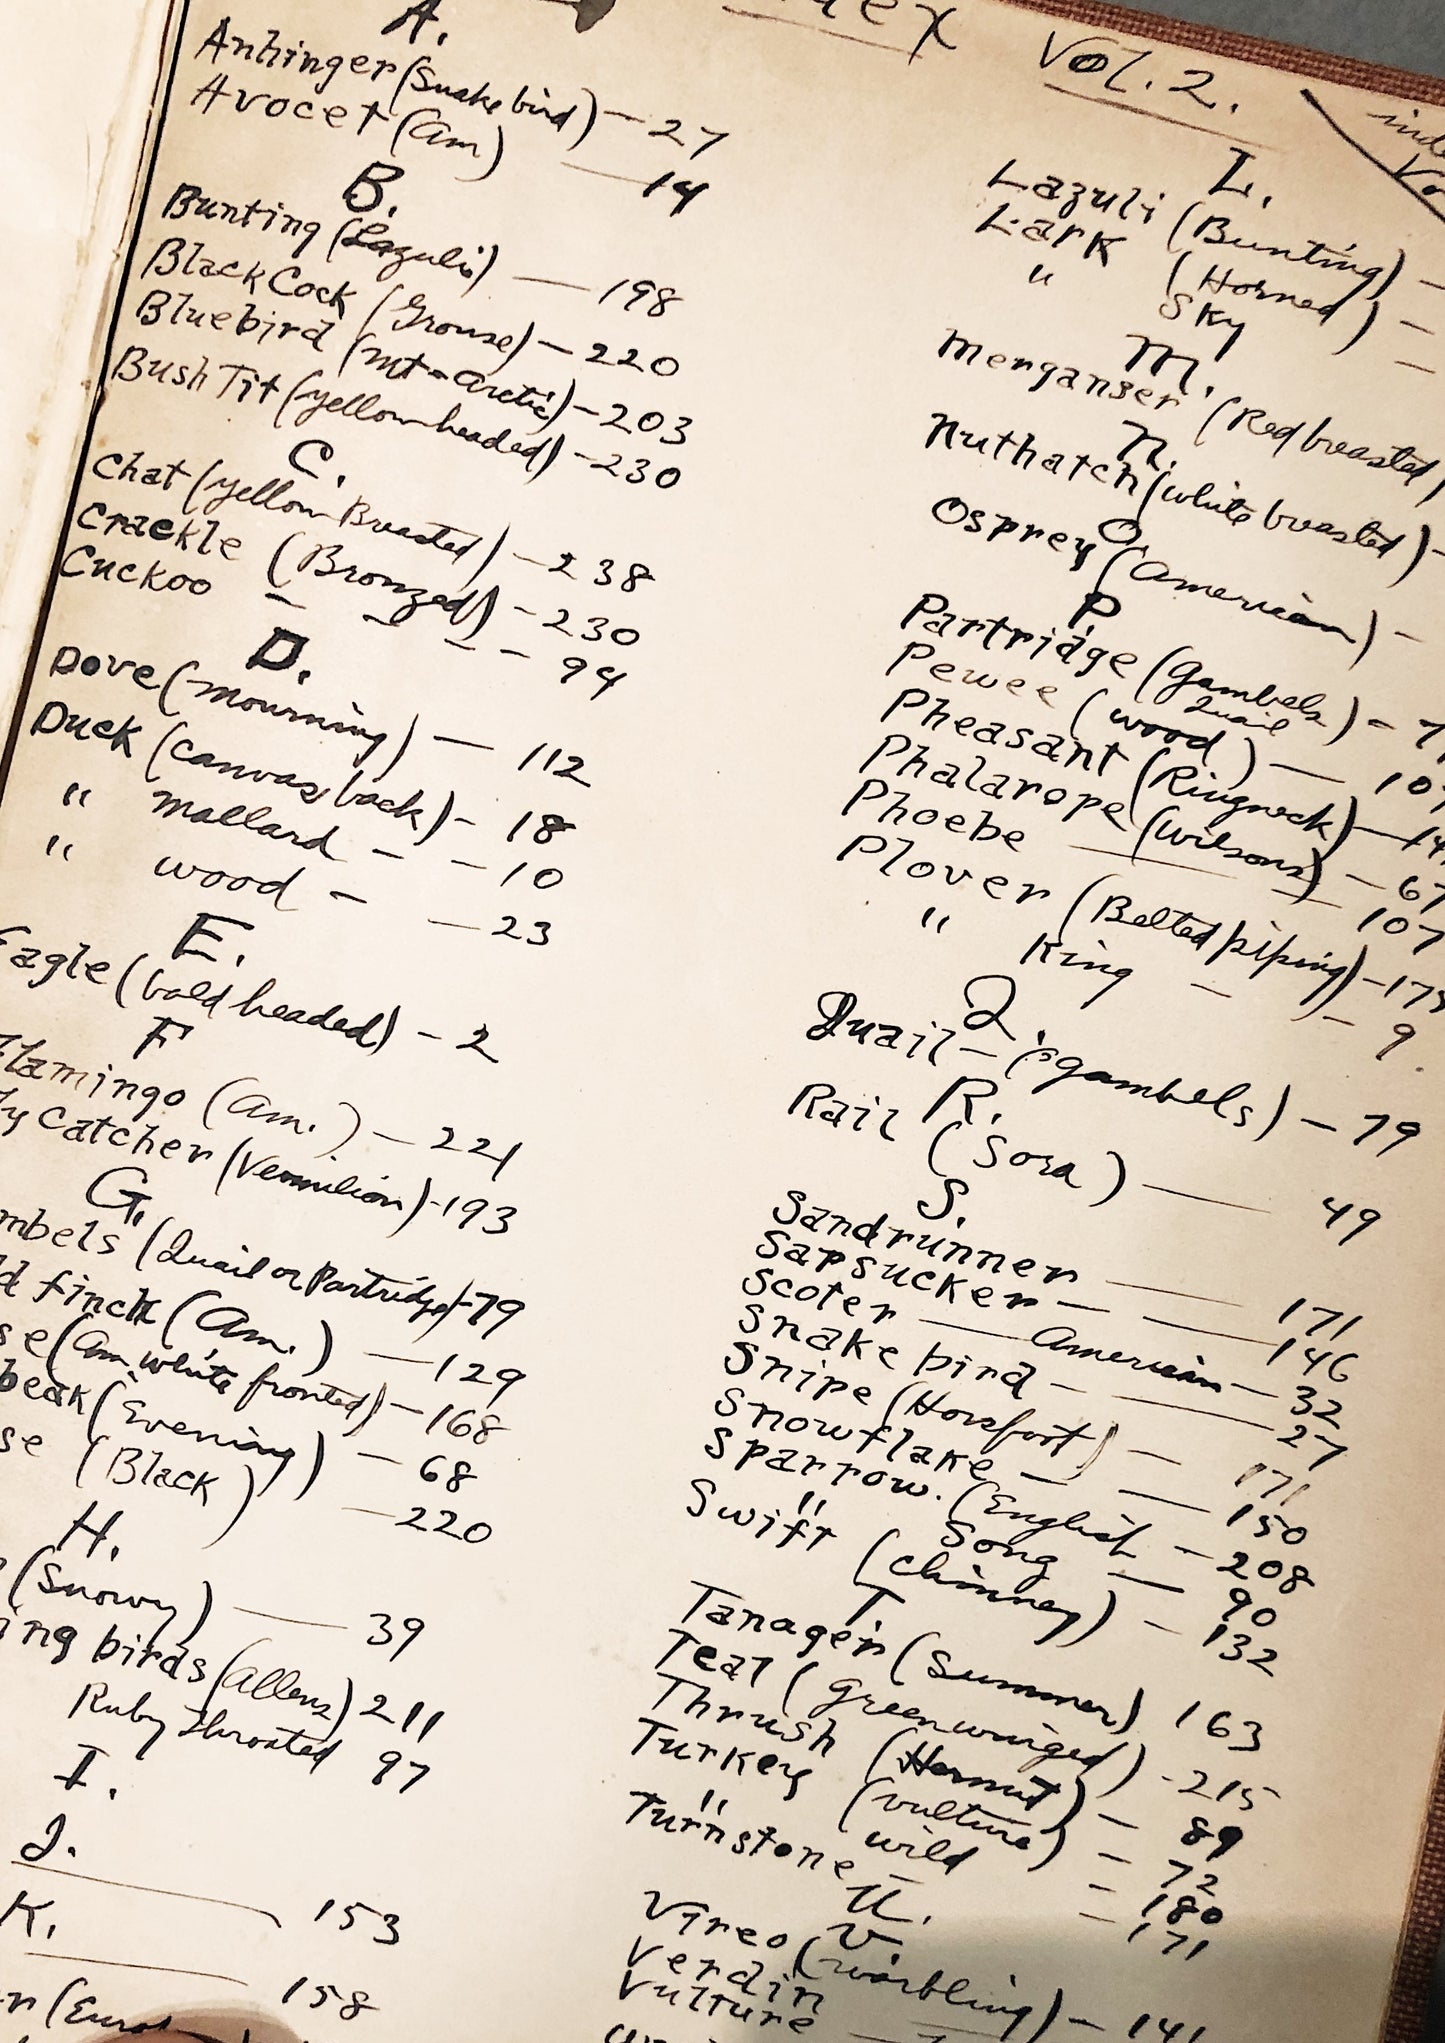 Vol. 2.
A.
Anhinger (Snake bird) — 27
Avocet (Am) — 14
B.
Bunting (Lazuli) — 198
Black Cock (Grouse) — 220
Bluebird (mt - arctic) — 203
Bush Tit (yellow headed) — 230
C.
Chat (yellow Breasted) — 238
Crackle (Bronzed) — 230
Cuckoo - - - - 94
D.
Dove (mourning) — 112
Duck (canvas back) - 18
" mallard - - 10
" wood - — 23
E.
Eagle (bald headed) - 2
F
Flamingo (Am.) — 221
Catcher (Vermilion) - 193
G.
mbels (Quail or Partridge) - 79
finch (Am.) — 129
se (Am. white fronted) — 168
beak (Evening) — 68
se (Black) — 220
H.
(Snowy) — 39
ing birds (Allens) 211
Ruby Throated 97
I.
J.
— 153
K.
— 158
L.
Lazuli (Bunting) -
Lark (Horned) -
" Sky -
M.
Merganser (Red breasted)
N.
Nuthatch (white breasted) -
O.
Osprey (American) -
P
Partridge (Gambels Quail) - 7
Pewee (wood) — 10
Pheasant (Ringneck) — 14
Phalarope (Wilsons) - 67
Phoebe — 107
Plover (Belted piping) - 175
" King - - 9
Q.
Quail - (gambels) - 79
R.
Rail (Sora) — 49
S.
Sandrunner — 171
Sapsucker — 146
Scoter — American — 32
Snake bird - — 27
Snipe (Horsfoot) — 171
Snowflake — 150
Sparrow. (English - 208
" Song — 90
Swift (chimney) - 132
T.
Tanager (Summer) 163
Teal (Green winged) - 215
Thrush (Hermit) - 89
Turkey (vulture) - 72
" wild - 180
Turnstone - - 171
U.
V.
Vireo (warbling) - 141
Verdin
Vulture